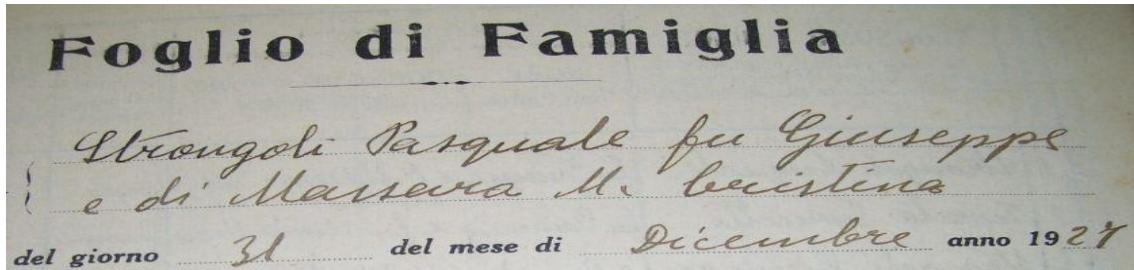 Foglio di Famiglia
Strongoli Pasquale fu Giuseppe
e di Massara M. Cristina
del giorno 31 del mese di Dicembre anno 1927